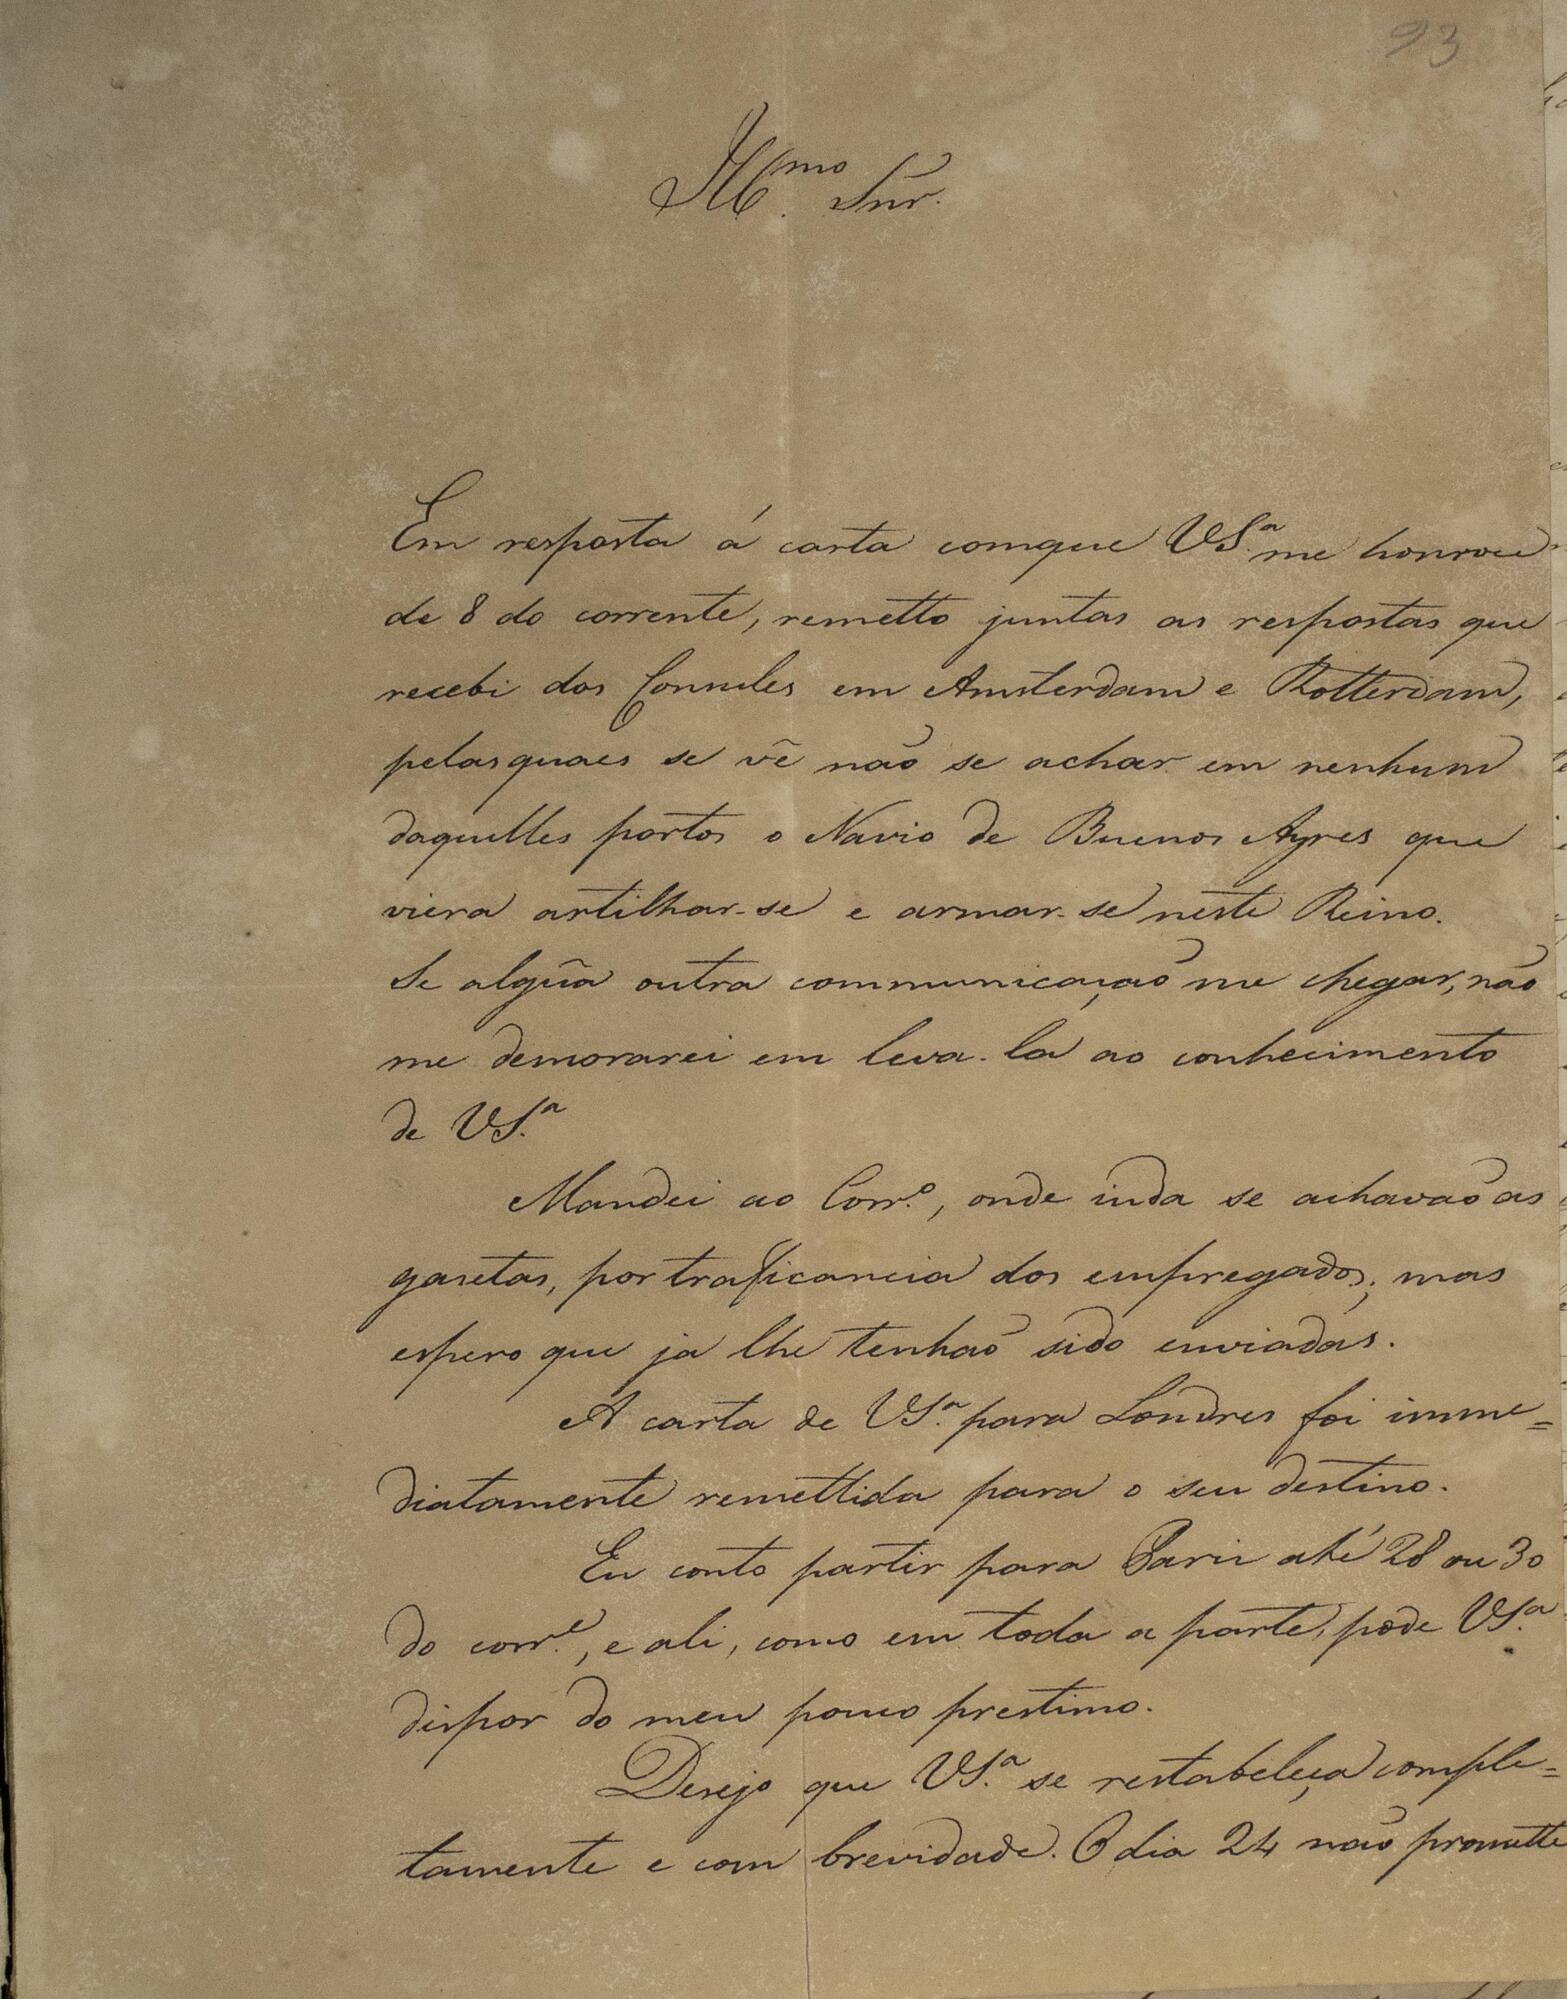 93
Ill.mo Snr.
Em resposta á carta comque VS.a me honrou
de 8 do corrente, remetto juntas as respostas que
recebi dos Consules em Amsterdam e Rotterdam,
pelasquaes se vê não se achar em nenhum
daquelles portos o Navio de Buenos Ayres que
viera artilhar-se e armar-se neste Reino.
Se algũa outra communicação me chegar, não
me demorarei em leva-la ao conhecimento
de VS.a
Mandei ao Corr.o, onde inda se achavão as
gasetas, por traficancia dos empregados; mas
espero que ja lhe tenhão sido enviadas.
A carta de VS.a para Londres foi imme=
diatamente remettida para o seu destino.
Eu conto partir para Paris até 28 ou 30
do corr.e, e ali, como em toda a parte, póde VS.a
dispor do meu pouco prestimo.
Desejo que VS.a se restabeleça comple=
tamente e com brevidade. O dia 24 não promette